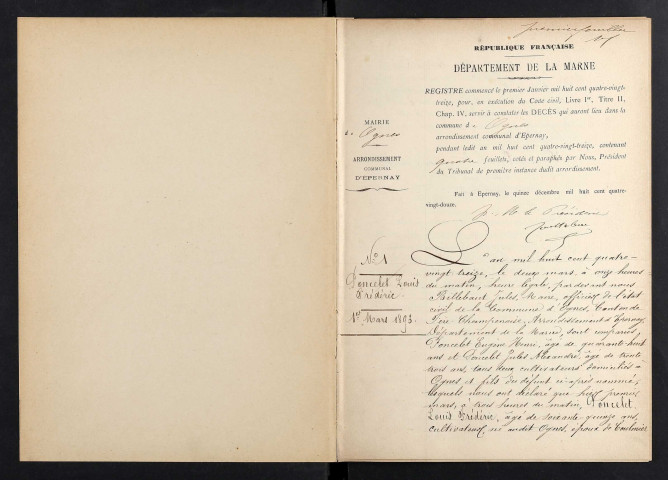 premier feuillet
RÉPUBLIQUE FRANÇAISE
DÉPARTEMENT DE LA MARNE
REGISTRE commencé le premier Janvier mil huit cent quatre-vingt-
treize, pour, en exécution du Code civil, Livre Ier, Titre II,
Chap. IV, servir à constater les DÉCÈS qui auront lieu dans la
commune d'Ognes
arrondissement communal d'Epernay,
pendant ledit an mil huit cent quatre-vingt-treize, contenant
quatre feuillets, cotés et paraphés par Nous, Président
du Tribunal de première instance dudit arrondissement.
Fait à Epernay, le quinze décembre mil huit cent quatre-
vingt-douze.
MAIRIE
d'Ognes
ARRONDISSEMENT
COMMUNAL
D'ÉPERNAY
le Président
N° 1
Poncelet Louis
Frédéric
1er Mars 1893
L'an mil huit cent quatre-
vingt treize, le deux mars à onze heures
du matin, heure légale, pardevant nous
Jules, Maire, officier de l'état
civil de la Commune d'Ognes, Canton de
Fère Champenoise, Arrondissement d'Epernay
Département de la Marne, sont comparus,
Poncelet Eugène Henri, âgé de quarante-huit
ans et Poncelet Jules Alexandre, âgé de trente
trois ans, tous deux cultivateurs domiciliés à
Ognes et fils du défunt ci-après nommé,
lesquels nous ont déclaré que hier premier
mars, à trois heures du matin, Poncelet
Louis Frédéric, âgé de soixante-quinze ans,
cultivateur, né audit Ognes, époux de